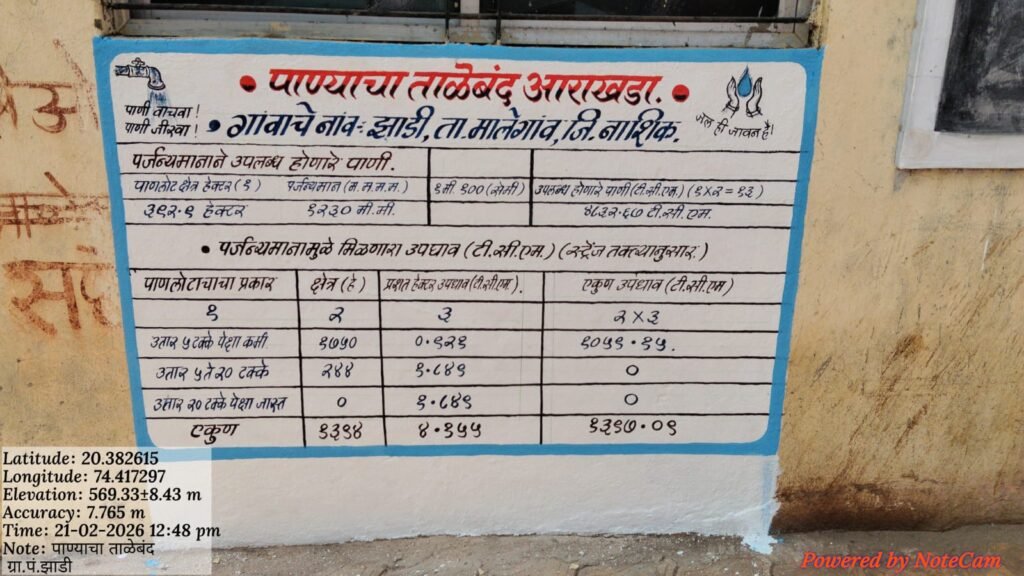 • पाण्याचा ताळेबंद आराखडा. •
पाणी वाचवा!
पाणी जिरवा!
• गांवाचे नांव:- झाडी, ता. मालेगांव, जि. नाशिक.
जल ही जीवन है!
पर्जन्यमानाने उपलब्ध होणारे पाणी.
पाणलोट क्षेत्र हेक्टर (१) पर्जन्यमान (म.म.म.) १मी १०० (सेमी) उपलब्ध होणारे पाणी (टी.सी.एम.) (१×२=१३)
३९२.९ हेक्टर १२३० मी.मी. ४८३२.६७ टी.सी.एम.
• पर्जन्यमानामुळे मिळणारा उपधाव (टी.सी.एम.) (स्ट्रेंज तक्त्यानुसार.)
पाणलोटाचाचा प्रकार क्षेत्र (हे) प्रशत हेक्टर उपधाव (टी.सी.एम). एकुण उपधाव (टी.सी.एम)
१ २ ३ २×३
उतार ५ टक्के पेक्षा कमी १७५० ०.९२१ १०५९.१५.
उतार ५ ते २० टक्के २४४ १.८४९ ०
उतार २० टक्के पेक्षा जास्त ० १.८४९ ०
एकुण १३९४ ४.१५५ १३९७.०९
Latitude: 20.382615
Longitude: 74.417297
Elevation: 569.33±8.43 m
Accuracy: 7.765 m
Time: 21-02-2026 12:48 pm
Note: पाण्याचा ताळेबंद
ग्रा.पं.झाडी
Powered by NoteCam